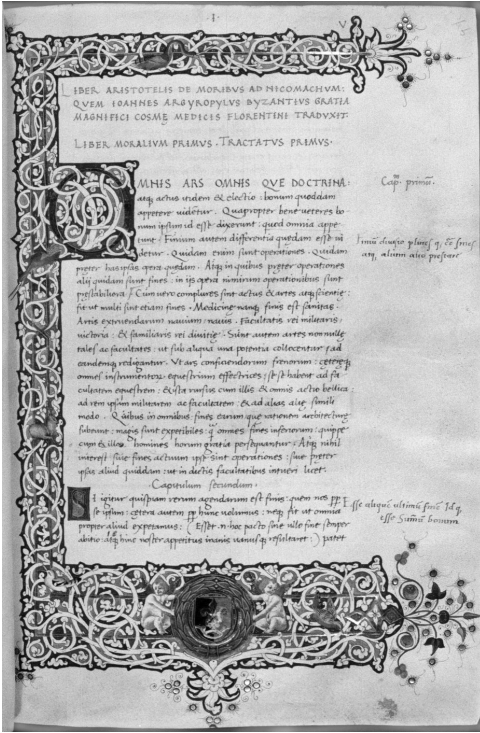 V
LIBER ARISTOTELIS DE MORIBUS AD NICOMACHUM:
QUEM IOANNES ARGYROPYLUS BYZANTIUS GRATIA
MAGNIFICI COSMĘ MEDICIS FLORENTINI TRADUXIT.
LIBER MORALIUM PRIMUS. TRACTATUS PRIMUS.
OMNIS ARS OMNIS QUE DOCTRINA:
atq; actus itidem & electio: bonum quoddam
appetere videtur. Quapropter bene veteres bo
num ipsum id esse dixerunt: quod omnia appe
tunt. Finium autem differentia quędam esse vi
detur. Quidam enim sunt operationes. Quidam
pręter has ipsas opera quędam. Atq; in quibus pręter operationes
alii quidam sunt fines: in iis opera nimirum operationibus sunt
prestabiliora. Cum vero complures sint actus & artes atq; scientię:
fit ut multi sint etiam fines. Medicinę nanq; finis est sanitas.
Artis extruendarum navium: navis. Facultatis rei militaris:
victoria: & familiaris rei divitię. Sunt autem artes non nullę
tales ac facultates: ut sub aliqua una potentia collocentur: & ad
eandemq; redigantur. Ut ars conficiendorum frenorum: ceteręq;
omnes instrumentorum equestrium effectrices: sese habent ad fa
cultatem equestrem: & ista rursus cum illis & omnis actio bellica:
ad rem ipsam militarem ac facultatem: & ad alias alię simili
modo. Quibus in omnibus fines earum que rationem architecturę
subeunt: magis sunt expetibiles: q̃ omnes fines inferiorum: quippe
cum & illos homines horum gratia persequantur. Atq; nihil
interest sive fines actuum ipsę sint operationes: sive pręter
ipsas aliud quiddam: ut in dictis facultatibus intueri licet.
Capitulum secundum.
SI igitur quispiam rerum agendarum est finis: quem nos pp̃
se ipsum: cetera autem pp̃ hunc volumus: neq; fit ut omnia
propter aliud expetamus: (Esset n. hoc pacto sine ullo fine semper
abitio: atq; hinc noster appetitus inanis vanusq; resultaret:) patet
Cap. primũ.
Finiũ
Esse aliquẽ ultimũ finẽ Idq;
esse Summũ bonum